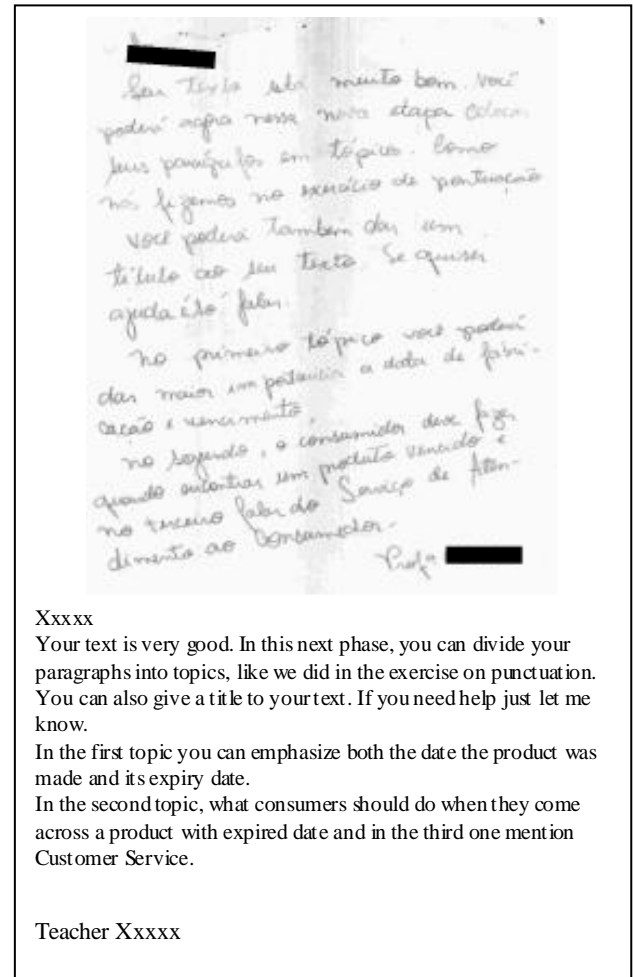 Seu texto está muito bom. Você
poderá agora nessa nova etapa colocar
seus parágrafos em tópicos. Como
nós fizemos no exercício de pontuação
Você poderá também dar um
título ao seu texto. Se quiser
ajuda é só falar.
No primeiro tópico você poderá
dar maior importância a data de fabri-
cação e vencimento.
No segundo, o consumidor deve fazer
quando encontrar um produto vencido e
no terceiro falar do Serviço de Aten-
dimento ao Consumidor.
Profª
Xxxxx
Your text is very good. In this next phase, you can divide your
paragraphs into topics, like we did in the exercise on punctuation.
You can also give a title to your text. If you need help just let me
know.
In the first topic you can emphasize both the date the product was
made and its expiry date.
In the second topic, what consumers should do when they come
across a product with expired date and in the third one mention
Customer Service.
Teacher Xxxxx